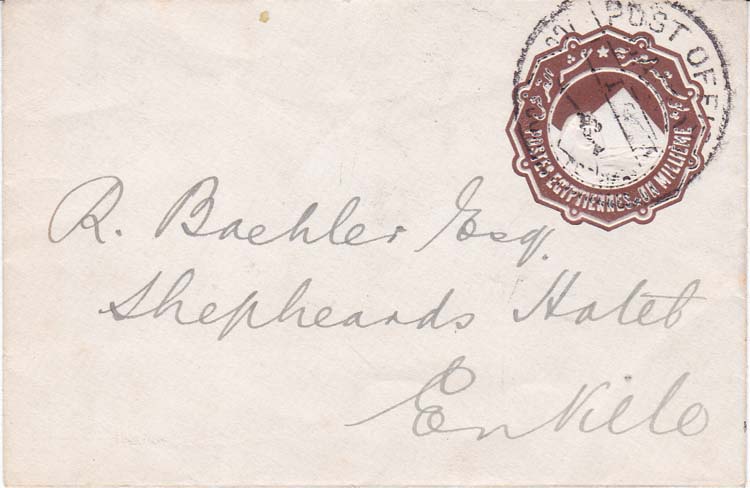 POST OFFI
POSTES EGYPTIENNES_UN MILLIEME
R. Baehler Esq.
Shepheards Hotel
En Ville